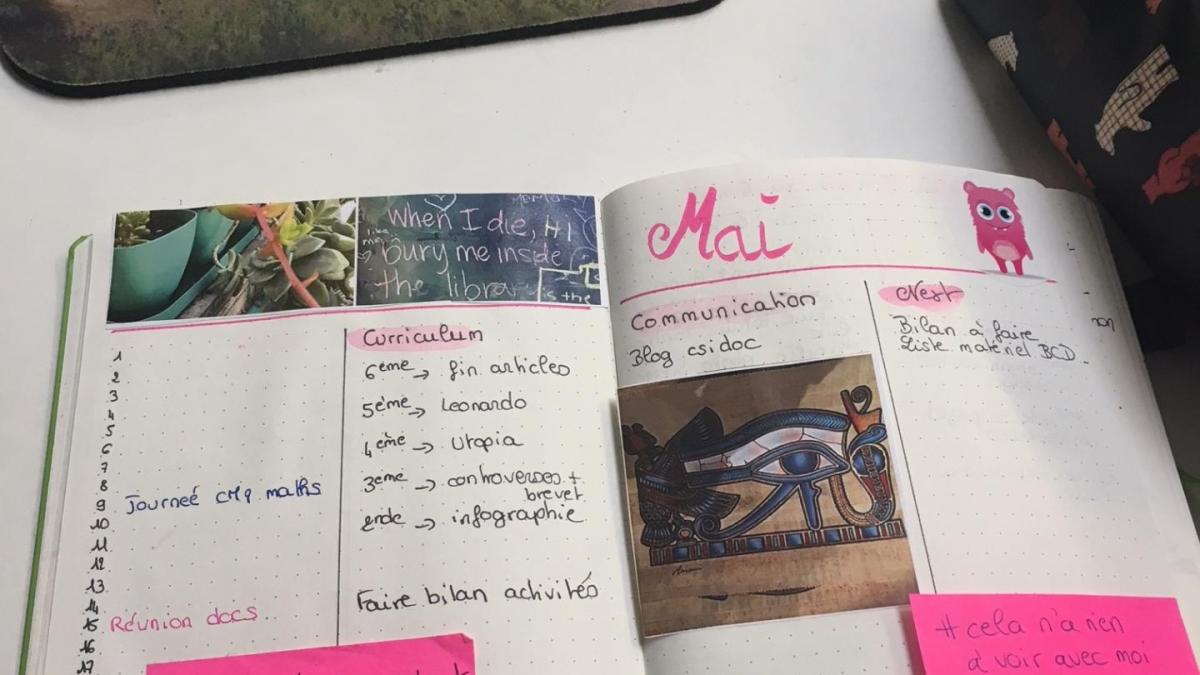 When I die,
bury me inside
the libra
is the
like
me
1
2
3
4
5
6
7
8
9 Journeé CM1 maths
10
11
12
13
14
15 Réunion docs.
16
17
Curriculum
6eme → fin articles
5ème → Leonardo
4ème → Utopia
3eme → controverses +
brevet
2nde → infographie
Faire bilan activités
Mai
Communication
Blog esidoc
Next
Bilan à faire
Liste matériel BCD.
# cela n'a rien
à voir avec moi